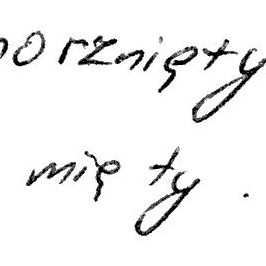 orznięty
mię ty .